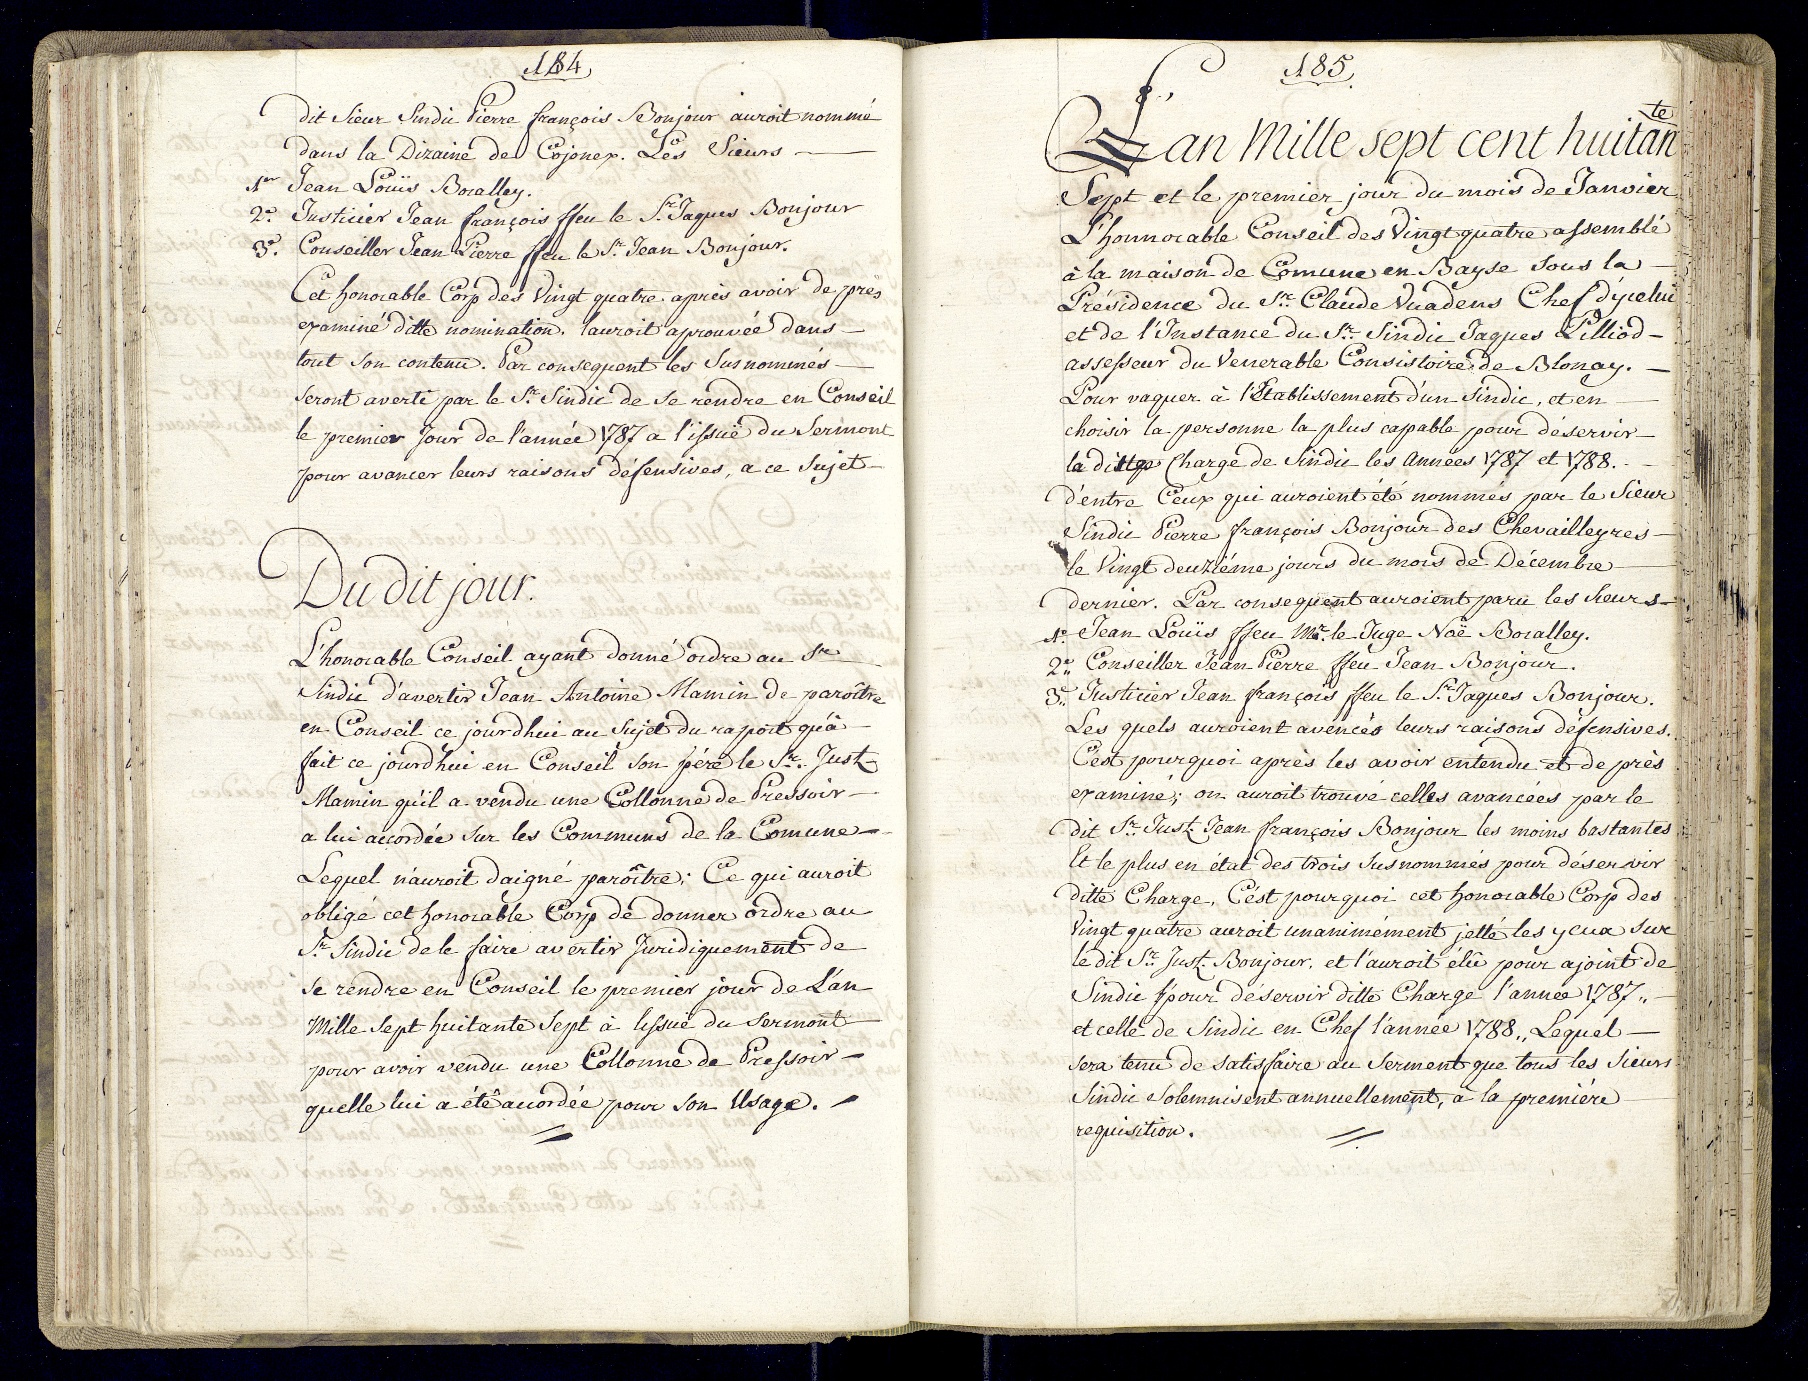 184
dit Sieur Sindic Pierre françois Bonjour auroit nommé
dans la Dizaine de Cojonex. Les Sieurs
1er Jean Louïs Boralley.
2e. Justicier Jean françois ffeu le Sr. Jaques Bonjour
3e. Conseiller Jean Pierre ffeu le Sr. Jean Bonjour.
Cet honorable Corp des Vingt quatre après avoir de près
examiné ditte nomination. l'auroit aprouvée dans
tout son contenu. Par consequent les Susnommés
seront averti par le Sr. Sindic de se rendre en Conseil
le premier Jour de l'année 1787 a l'issuë du Sermont
pour avancer leurs raisons défensives, a ce Sujet
Du dit jour.
L'honorable Conseil ayant donné ordre au Sr
Sindic d'avertir Jean Antoine Mamin de paroître
en Conseil ce jourdhui au Sujet du raport qu'à
fait ce jourdhui en Conseil son pére le Sr. Just.
Mamin qu'il a vendu une Collonne de Pressoir
a lui accordée sur les Communs de la Comune
Lequel n'auroit daigné paroître; Ce qui auroit
obligé cet honorable Corp de donner ordre au
Sr. Sindic de le faire avertir Juridiquement de
se rendre en Conseil le premier jour de L'an
Mille Sept huitante Sept à lissuë du Sermont
pour avoir vendu une Collonne de Pressoir
quelle lui a été accordée pour son Usage.
185.
L'an Mille sept cent huitante
Sept et le premier jour du mois de Janvier
L'honnorable Conseil des Vingt quatre assemblé
à la maison de Comune en Bayse sous la
Présidence du Sr. Claude Vuadens Chef d'ycelui
et de l'Instance du Sr. Sindic Jaques Pilliod
assesseur du Venerable Consistoire de Blonay.
Pour vaquer à l'Etablissement d'un Sindic, et en
choisir la personne la plus capable pour déservir
la ditte Charge de Sindic les Années 1787 et 1788.
d'entre Ceux qui auroient été nommés par le Sieur
Sindic Pierre françois Bonjour des Chevailleyres
le Vingt deuziéme jours du mois de Décembre
dernier. Par consequent auroient paru les Sieurs
1e. Jean Louïs ffeu Mr. le Juge Noë Boralley.
2e. Conseiller Jean Pierre ffeu Jean Bonjour.
3e. Justicier Jean françois ffeu le Sr. Jaques Bonjour.
Les quels auroient avencés leurs raisons défensives.
C'est pourquoi après les avoir entendu et de près
examiné; on auroit trouvé celles avancées par le
dit Sr. Just. Jean françois Bonjour les moins bastantes
Et le plus en état des trois Susnommés pour déservir
ditte Charge, C'est pourquoi cet honorable Corp des
Vingt quatre auroit unanimément jetté les yeux sur
le dit Sr. Just. Bonjour. et l'auroit élû pour ajoint de
Sindic pour déservir ditte Charge l'année 1787.,
et celle de Sindic en Chef l'année 1788., Lequel
sera tenu de satisfaire au Serment que tous les Sieurs
Sindic Solemnisent annuellement, à la premiére
requisition.